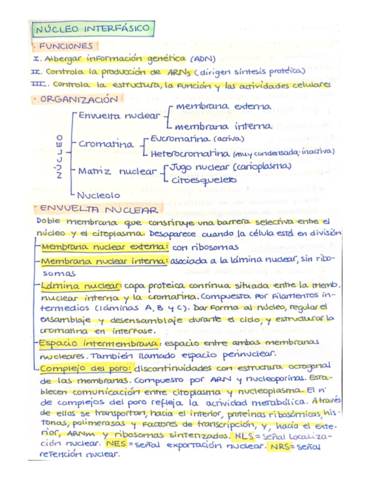 NÚCLEO INTERFÁSICO
· FUNCIONES
I. Albergar información genética (ADN)
II. Controla la producción de ARNs (dirigen síntesis proteica)
III. Controla la estructura, la función y las actividades celulares
· ORGANIZACIÓN
NÚCLEO
Envuelta nuclear
membrana externa
membrana interna
Cromatina
Eucromatina (activa)
Heterocromatina (muy condensada; inactiva)
Matriz nuclear
Jugo nuclear (carioplasma)
Citoesqueleto
Nucleolo
· ENVUELTA NUCLEAR
Doble membrana que constituye una barrera selectiva entre el
núcleo y el citoplasma. Desaparece cuando la célula está en división
Membrana nuclear externa: con ribosomas
Membrana nuclear interna: asociada a la lámina nuclear, sin ribo-
somas
Lámina nuclear: capa proteica continua situada entre la memb.
nuclear interna y la cromatina. Compuesta por filamentos in-
termedios (láminas A, B y C). Dar forma al núcleo, regular el
ensamblaje y desensamblaje durante el ciclo, y estructurar la
cromatina en interfase.
Espacio intermembrana: espacio entre ambas membranas
nucleares. También llamado espacio perinuclear.
Complejo del poro: discontinuidades con estructura octogonal
de las membranas. Compuesto por ARN y nucleoporinas. Esta-
blecen comunicación entre citoplasma y nucleoplasma. El nº
de complejos del poro refleja la actividad metabólica. A través
de ellos se transportan, hacia el interior, proteínas ribosómicas, his-
tonas, polimerasas y factores de transcripción, y, hacia el exte-
rior, ARNm y ribosomas sintetizados. NLS = Señal localiza-
ción nuclear. NES = señal exportación nuclear. NRS = señal
retención nuclear.